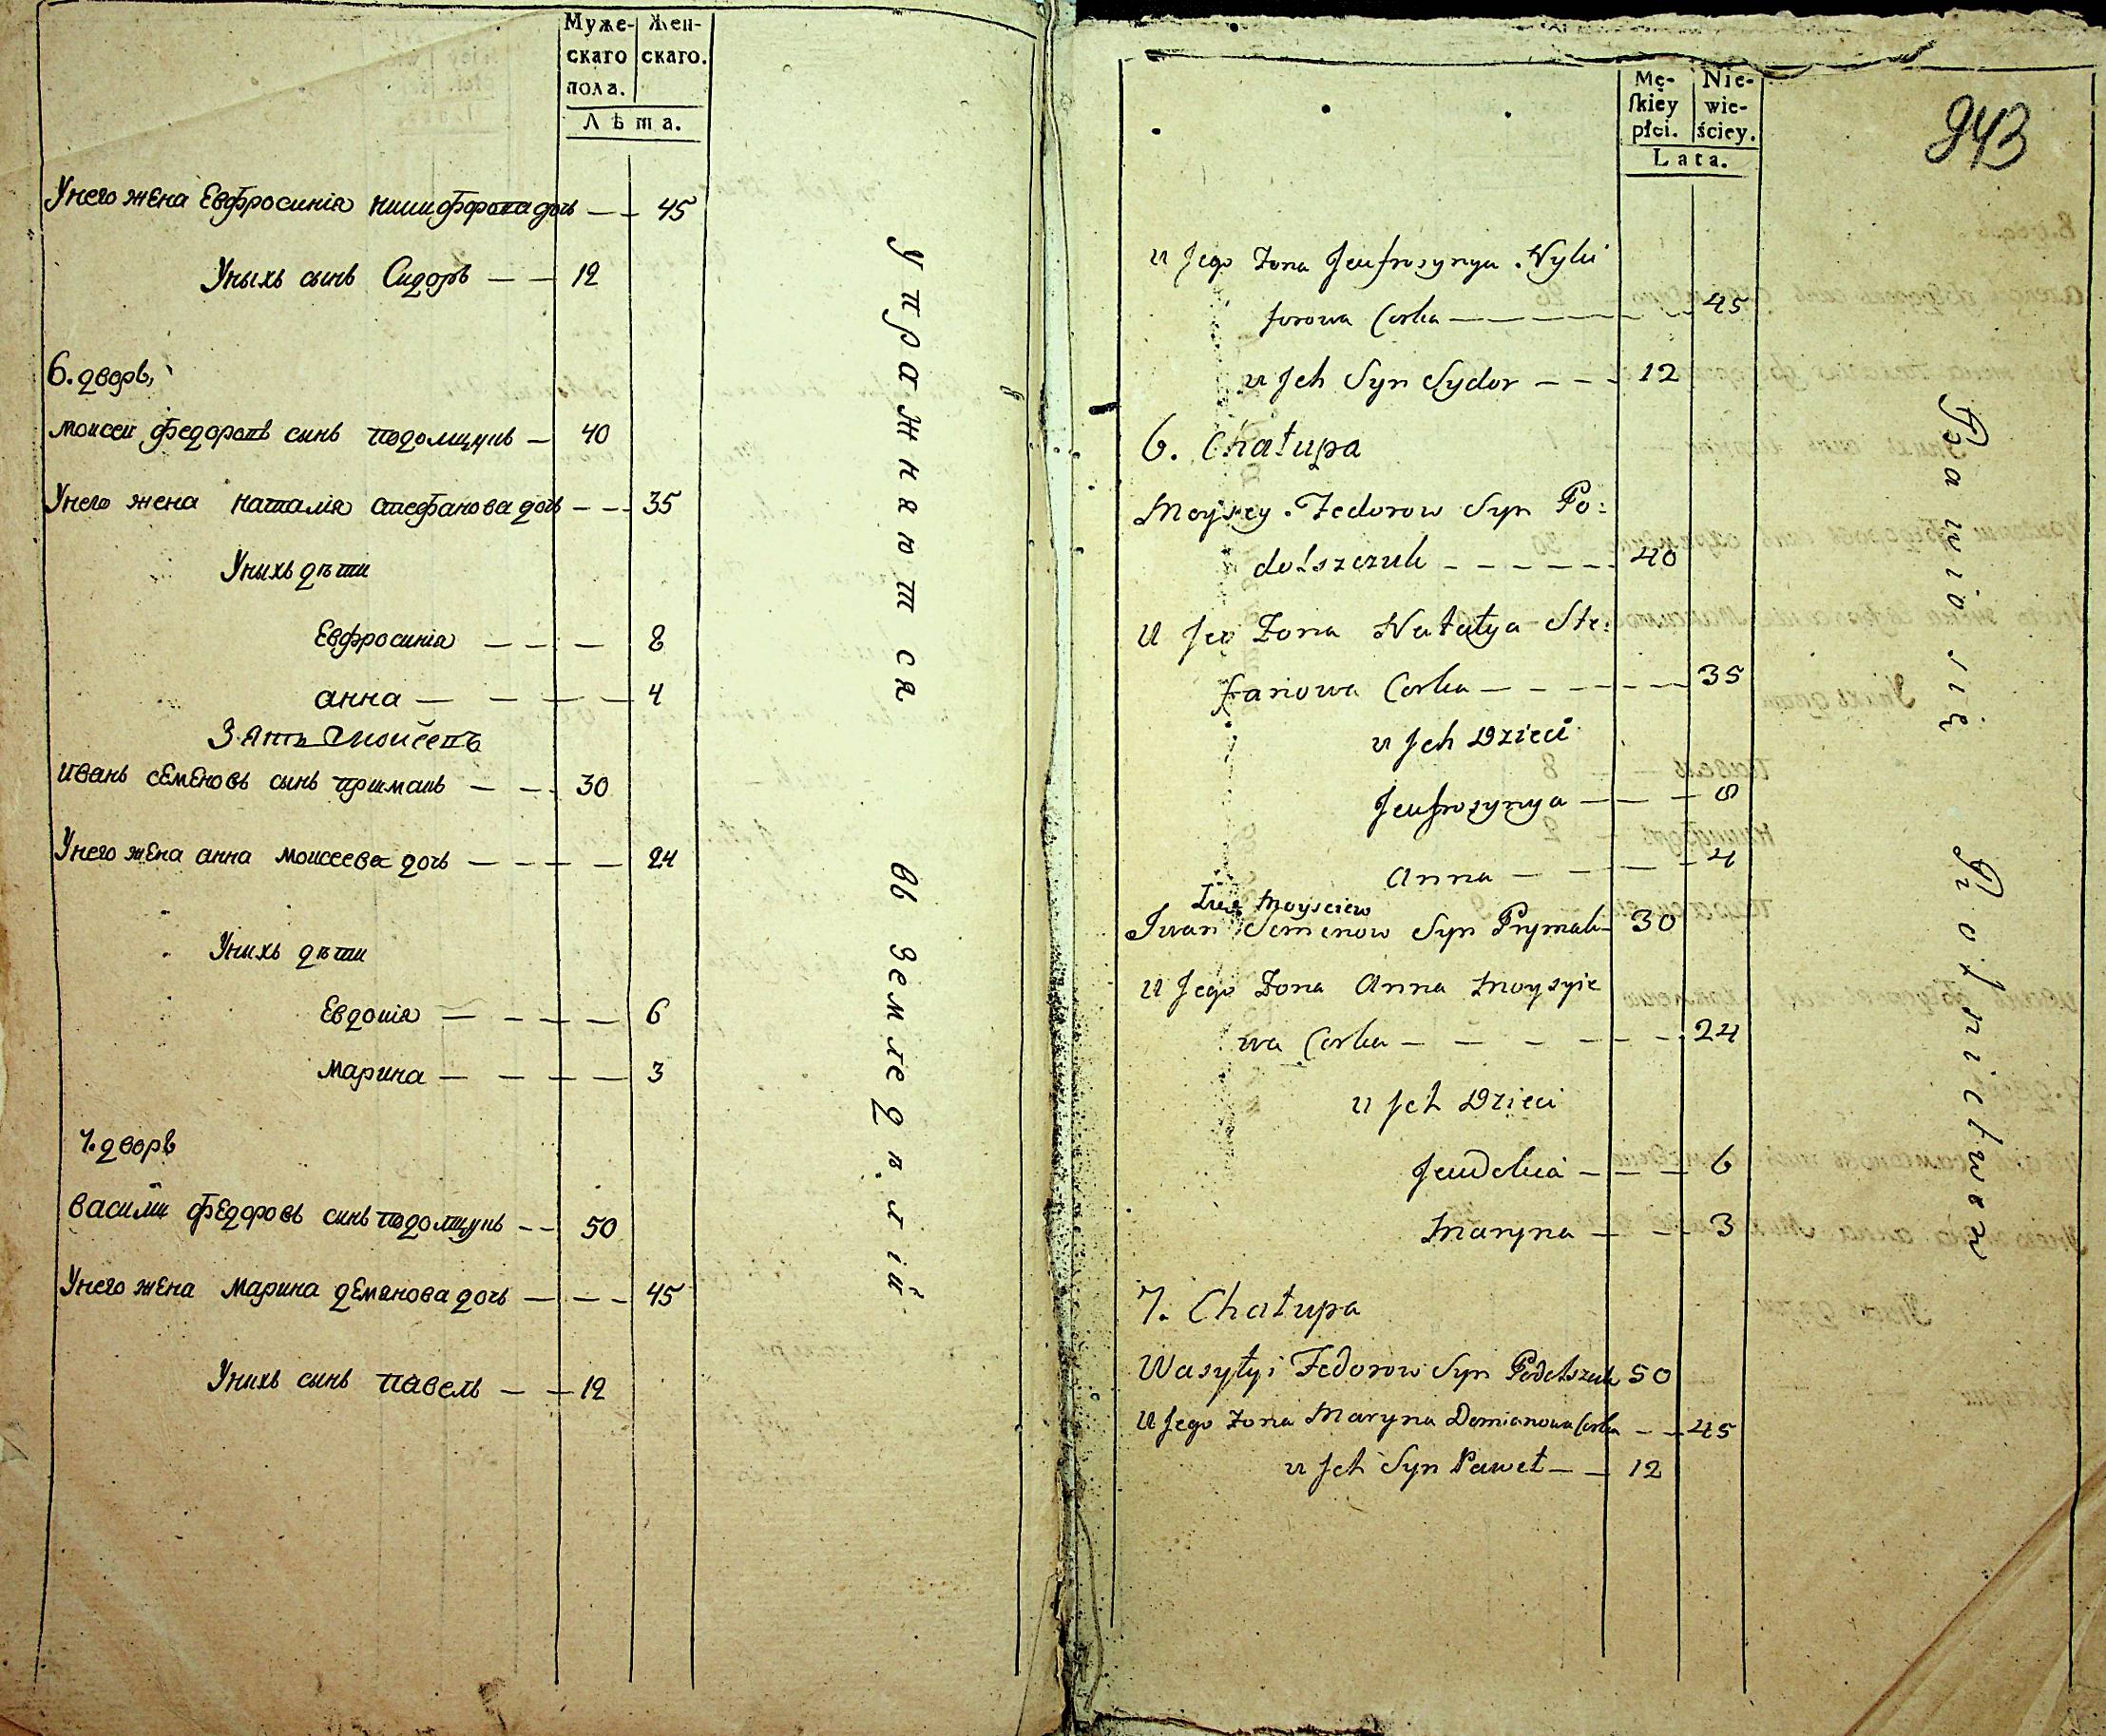 Муже- Жен-
скаго скаго.
пола.
Лѣта.
Унего жена Евфросинія никифорова дочь — — 45
Уныхъ сынъ Сидоръ — — 12
6. дворъ,
моисеи федоровъ сынъ подолщукъ — 40
Унего жена наталія стефанова дочь — — 35
Уныхъ дѣти
Евфросинія — — — 8
анна — — — — 4
Зять Моисеевъ
иванъ семеновъ сынъ примакъ — — 30
Унего жена анна моисеева дочь — — — — 24
Унихъ дѣти
Евдокія — — — — 6
марина — — — — 3
7. дворъ
василии федоровъ синъ подолщукъ — — 50
Унего жена марина демянова дочь — — — 45
Унихъ сынъ павелъ — — 12
Упражнаются въ земледѣлій
Mę- Nie-
ſkiey wie-
płci. ściey.
Lata.
943
u Jego Żona Jeufrosynya Nyki
forowa Corka — — — 45
u Jch Syn Sydor — — — 12
6. Chałupa
Moysey Fedorow Syn Po:
dolszczuk — — — — — — 40
U Jeo Żona Natałya Ste:
fanowa Corka — — — — — 35
u Jch Dzieci
Jeufrosynya — — — 8
Anna — — — — 4
Zięć Moyseiew
Jwan Semenow Syn Prymak 30
U Jego Żona Anna Moysyie
wa Corka — — — — — — 24
u Jch Dzieci
Jeudokia — — — 6
Maryna — — — 3
7. Chałupa
Wasyłyi Fedorow Syn Podolszuk 50
U Jego Żona Maryna Demianowa Corka — — 45
u Jch Syn Paweł — — 12
Bawio się Rolnictwem